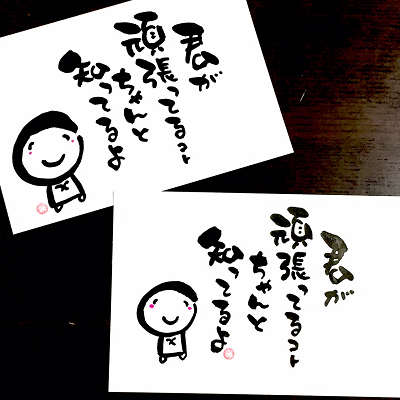 君が
頑張ってるコト
ちゃんと
知ってるよ
君が
頑張ってるコト
ちゃんと
知ってるよ